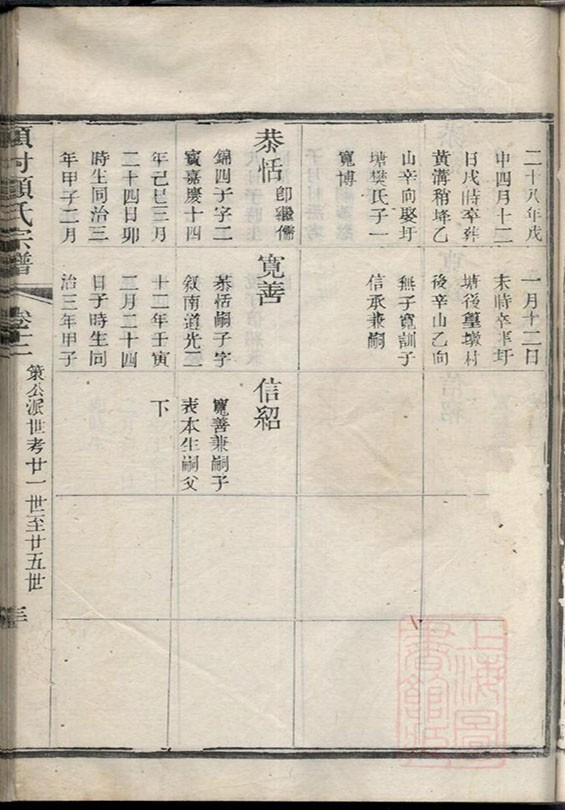 二十八年戊
申四月十二
日戌時卒葬
黃溝稍埄乙
山辛向娶圩
塘樊氏子一
寬博
一月十二日
未時卒葬圩
塘後篁墩村
後辛山乙向
無子寬訓子
信承兼嗣
恭恬
錦四子字二
賓嘉慶十四
年己巳三月
二十四日卯
時生同治三
年甲子二月
寬善
恭恬嗣子字
敘南道光二
十二年壬寅
三月二十四
日子時生同
治三年甲子
信紹
寬善兼嗣子
表本生嗣父
下
氏宗譜
策公派世考廿一世至廿五世
上海圖書館藏